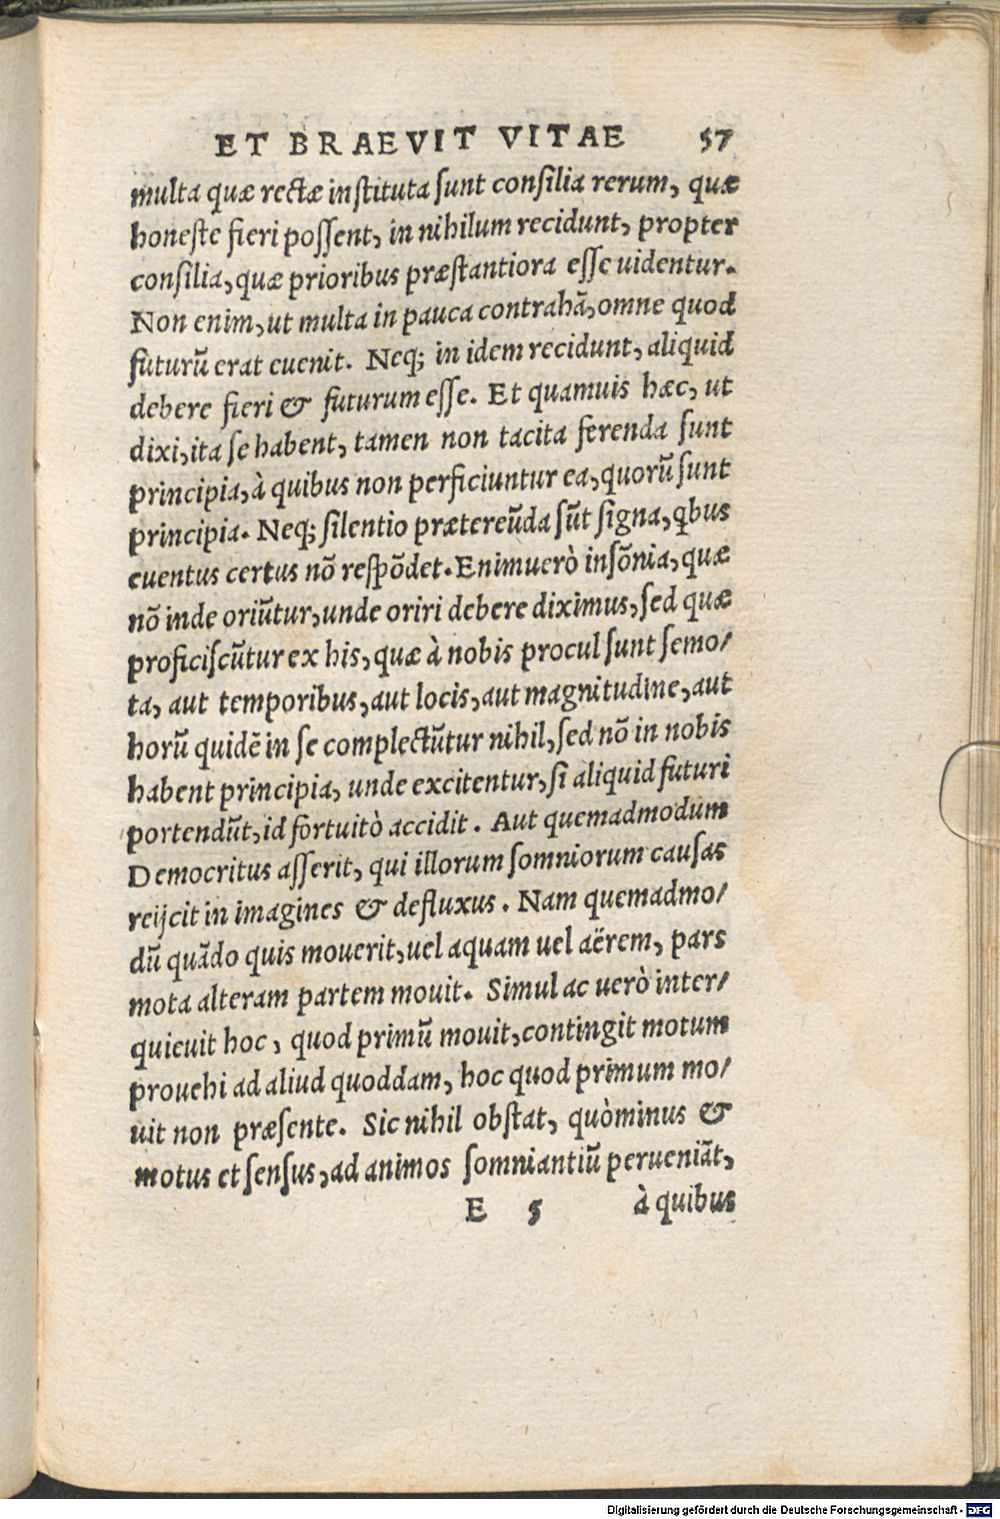 ET BRAEVIT VITAE 57
multa quæ rectæ instituta sunt consilia rerum, quæ
honeste fieri possent, in nihilum recidunt, propter
consilia, quæ prioribus præstantiora esse uidentur.
Non enim, ut multa in pauca contrahā, omne quod
futurū erat euenit. Neq; in idem recidunt, aliquid
debere fieri & futurum esse. Et quamuis hæc, ut
dixi, ita se habent, tamen non tacita ferenda sunt
principia, à quibus non perficiuntur ea, quorū sunt
principia. Neq; silentio prætereūda sūt signa, qbus
euentus certus nō respōdet. Enimuerò insōnia, quæ
nō inde oriūtur, unde oriri debere diximus, sed quæ
proficiscūtur ex his, quæ à nobis procul sunt semo/
ta, aut temporibus, aut locis, aut magnitudine, aut
horū quidē in se complectūtur nihil, sed nō in nobis
habent principia, unde excitentur, si aliquid futuri
portendūt, id fortuitò accidit. Aut quemadmodum
Democritus asserit, qui illorum somniorum causas
reijcit in imagines & defluxus. Nam quemadmo/
dū quādo quis mouerit, uel aquam uel aërem, pars
mota alteram partem mouit. Simul ac uerò inter/
quieuit hoc, quod primū mouit, contingit motum
prouehi ad aliud quoddam, hoc quod primum mo/
uit non præsente. Sic nihil obstat, quòminus &
motus et sensus, ad animos somniantiū perueniāt,
E 5 à quibus
Digitalisierung gefördert durch die Deutsche Forschungsgemeinschaft - DFG